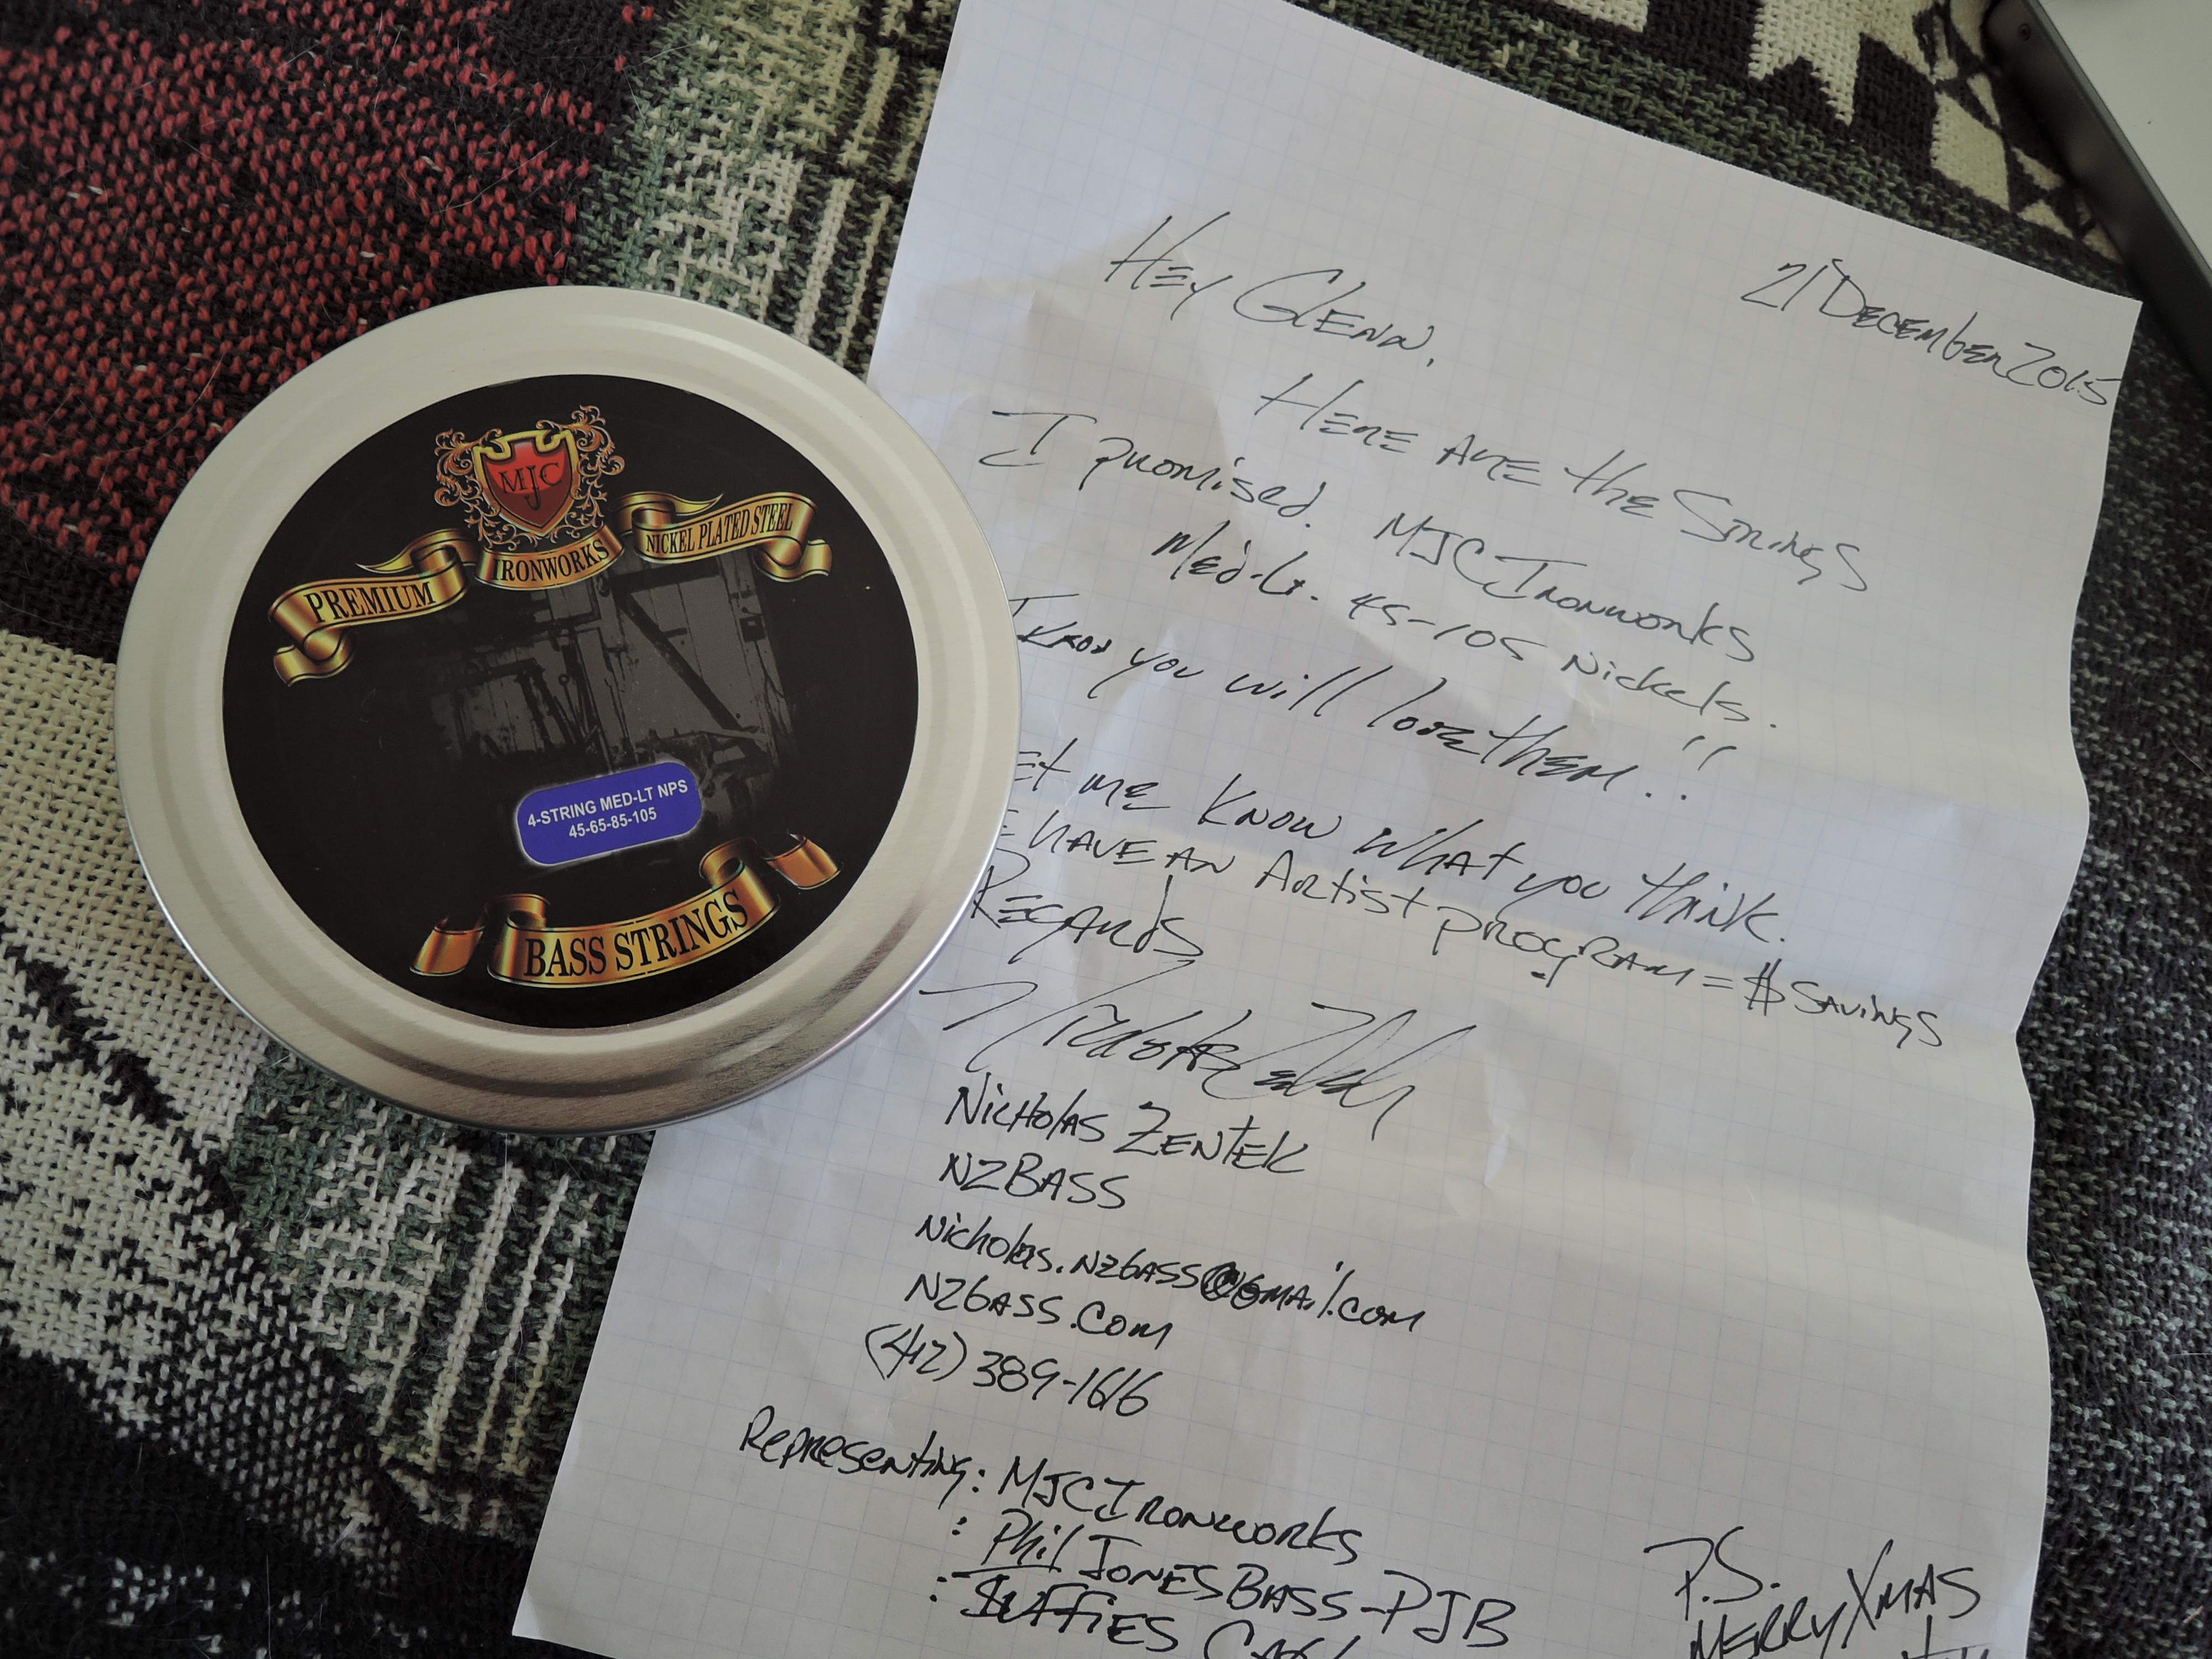 MJC
PREMIUM IRONWORKS NICKEL PLATED STEEL
4-STRING MED-LT NPS
45-65-85-105
BASS STRINGS
21 DECEMBER 2015
HEY GLENN,
HERE ARE the STRINGS
I promised. MJC IRONWORKS
Med-Lt. 45-105 Nickels.
I KNOW you will love them!!
et me KNOW what you think.
E HAVE AN Artist PROGRAM = $ SAVINGS
REGARDS
NICHOLAS ZENTEK
NZBASS
Nicholas.NZbASS@Gmail.com
NZbASS.COM
(412) 389-1616
Representing: MJC IRONWORKS
: Phil JONES BASS-PJB
P.S.
MERRY XMAS